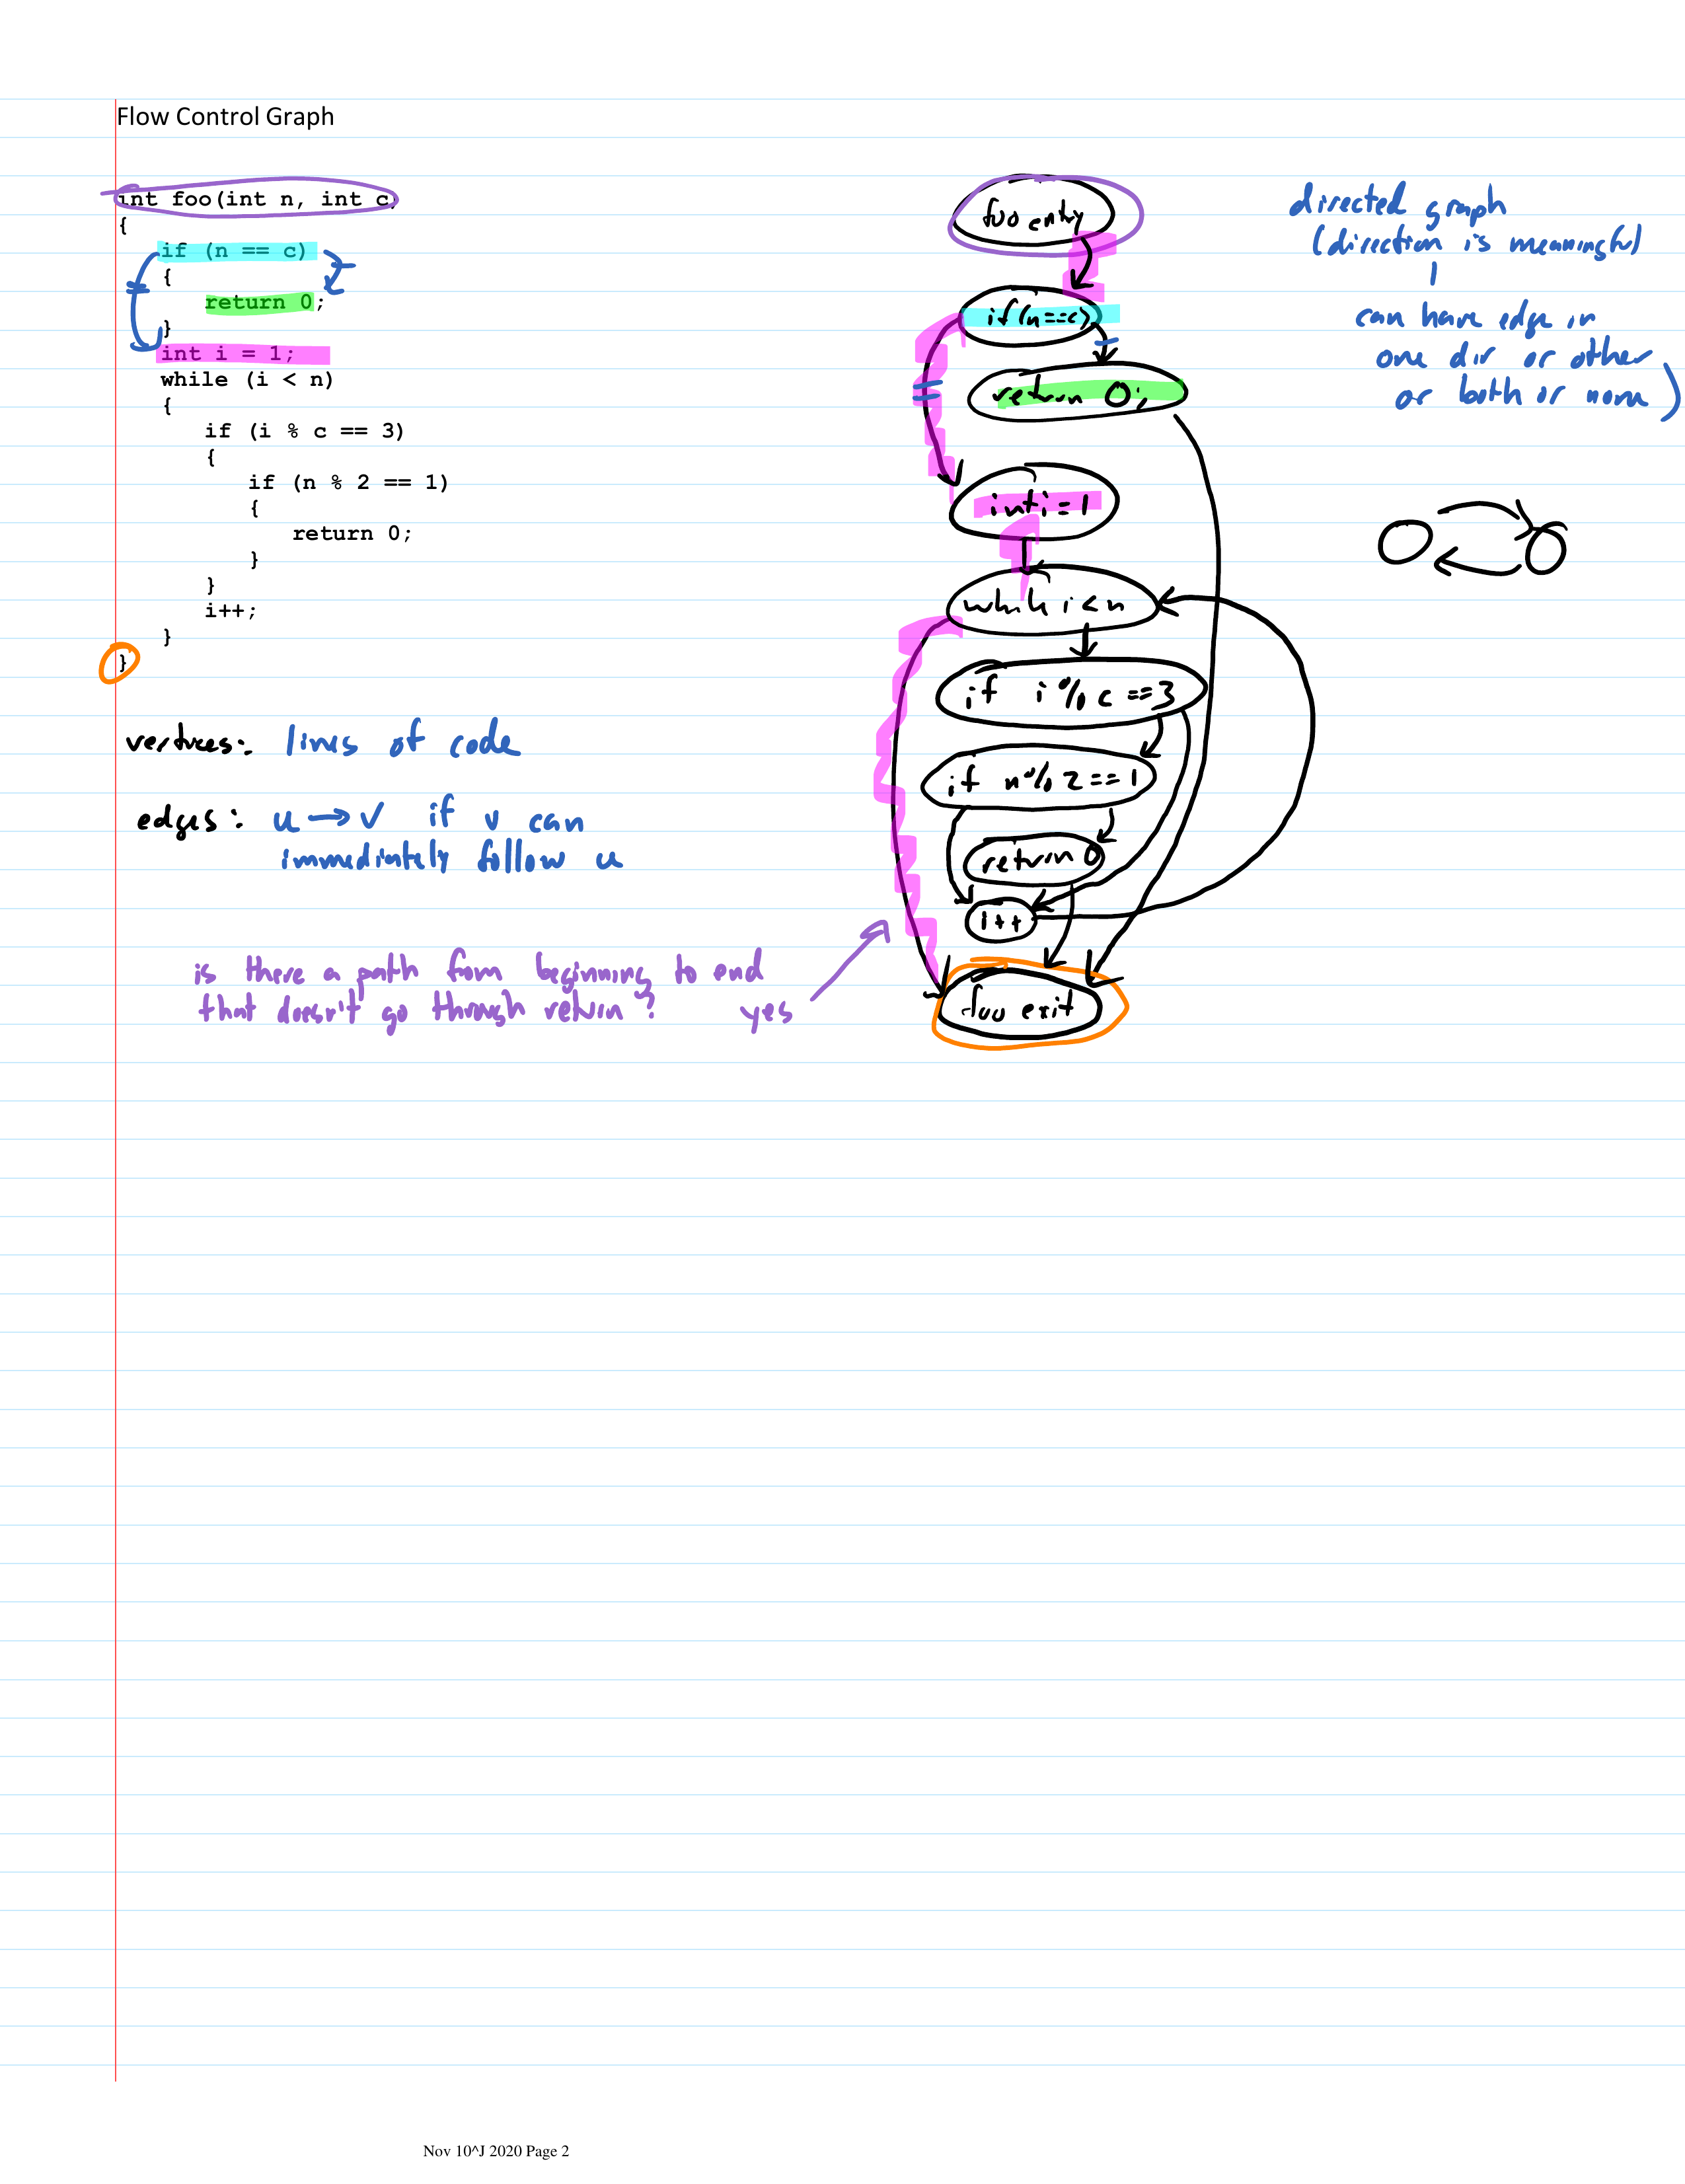 Flow Control Graph
int foo(int n, int c)
{
if (n == c)
{
return 0;
}
int i = 1;
while (i < n)
{
if (i % c == 3)
{
if (n % 2 == 1)
{
return 0;
}
}
i++;
}
}
vertices: lines of code
edges: u → v if v can
immediately follow u
is there a path from beginning to end
that doesn't go through return? yes
foo entry
if (n==c)
return 0;
int i=1
while i<n
if i % c ==3
if n % 2 == 1
return 0
i++
foo exit
directed graph
(direction is meaningful
can have edge in
one dir or other
or both or none)
Nov 10^J 2020 Page 2